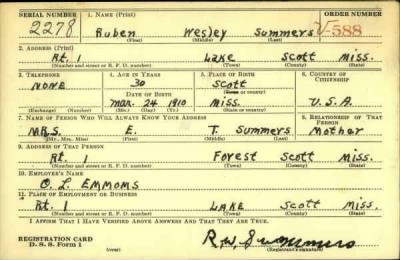 SERIAL NUMBER 1. NAME (Print) ORDER NUMBER
2278 Ruben Wesley Summers V-588
(First) (Middle) (Last)
2. ADDRESS (Print)
Rt. 1 Lake Scott Miss.
(Number and street or R. F. D. number) (Town) (County) (State)
3. TELEPHONE 4. AGE IN YEARS 5. PLACE OF BIRTH 6. COUNTRY OF CITIZENSHIP
NONE 30 Scott
DATE OF BIRTH (Town or county)
Mar. 24 1910 Miss. U.S.A.
(Exchange) (Number) (Mo.) (Day) (Yr.) (State or country)
7. NAME OF PERSON WHO WILL ALWAYS KNOW YOUR ADDRESS 8. RELATIONSHIP OF THAT PERSON
MRS. E. T. Summers Mother
(Mr., Mrs., Miss) (First) (Middle) (Last)
9. ADDRESS OF THAT PERSON
Rt. 1 Forest Scott Miss.
(Number and street or R. F. D. number) (Town) (County) (State)
10. EMPLOYER'S NAME
O. L. EMMOMS
11. PLACE OF EMPLOYMENT OR BUSINESS
Rt. 1 LAKE Scott Miss.
(Number and street or R. F. D. number) (Town) (County) (State)
I AFFIRM THAT I HAVE VERIFIED ABOVE ANSWERS AND THAT THEY ARE TRUE.
REGISTRATION CARD
D. S. S. FORM 1 (over) R.W. Summers
(Registrant's signature)